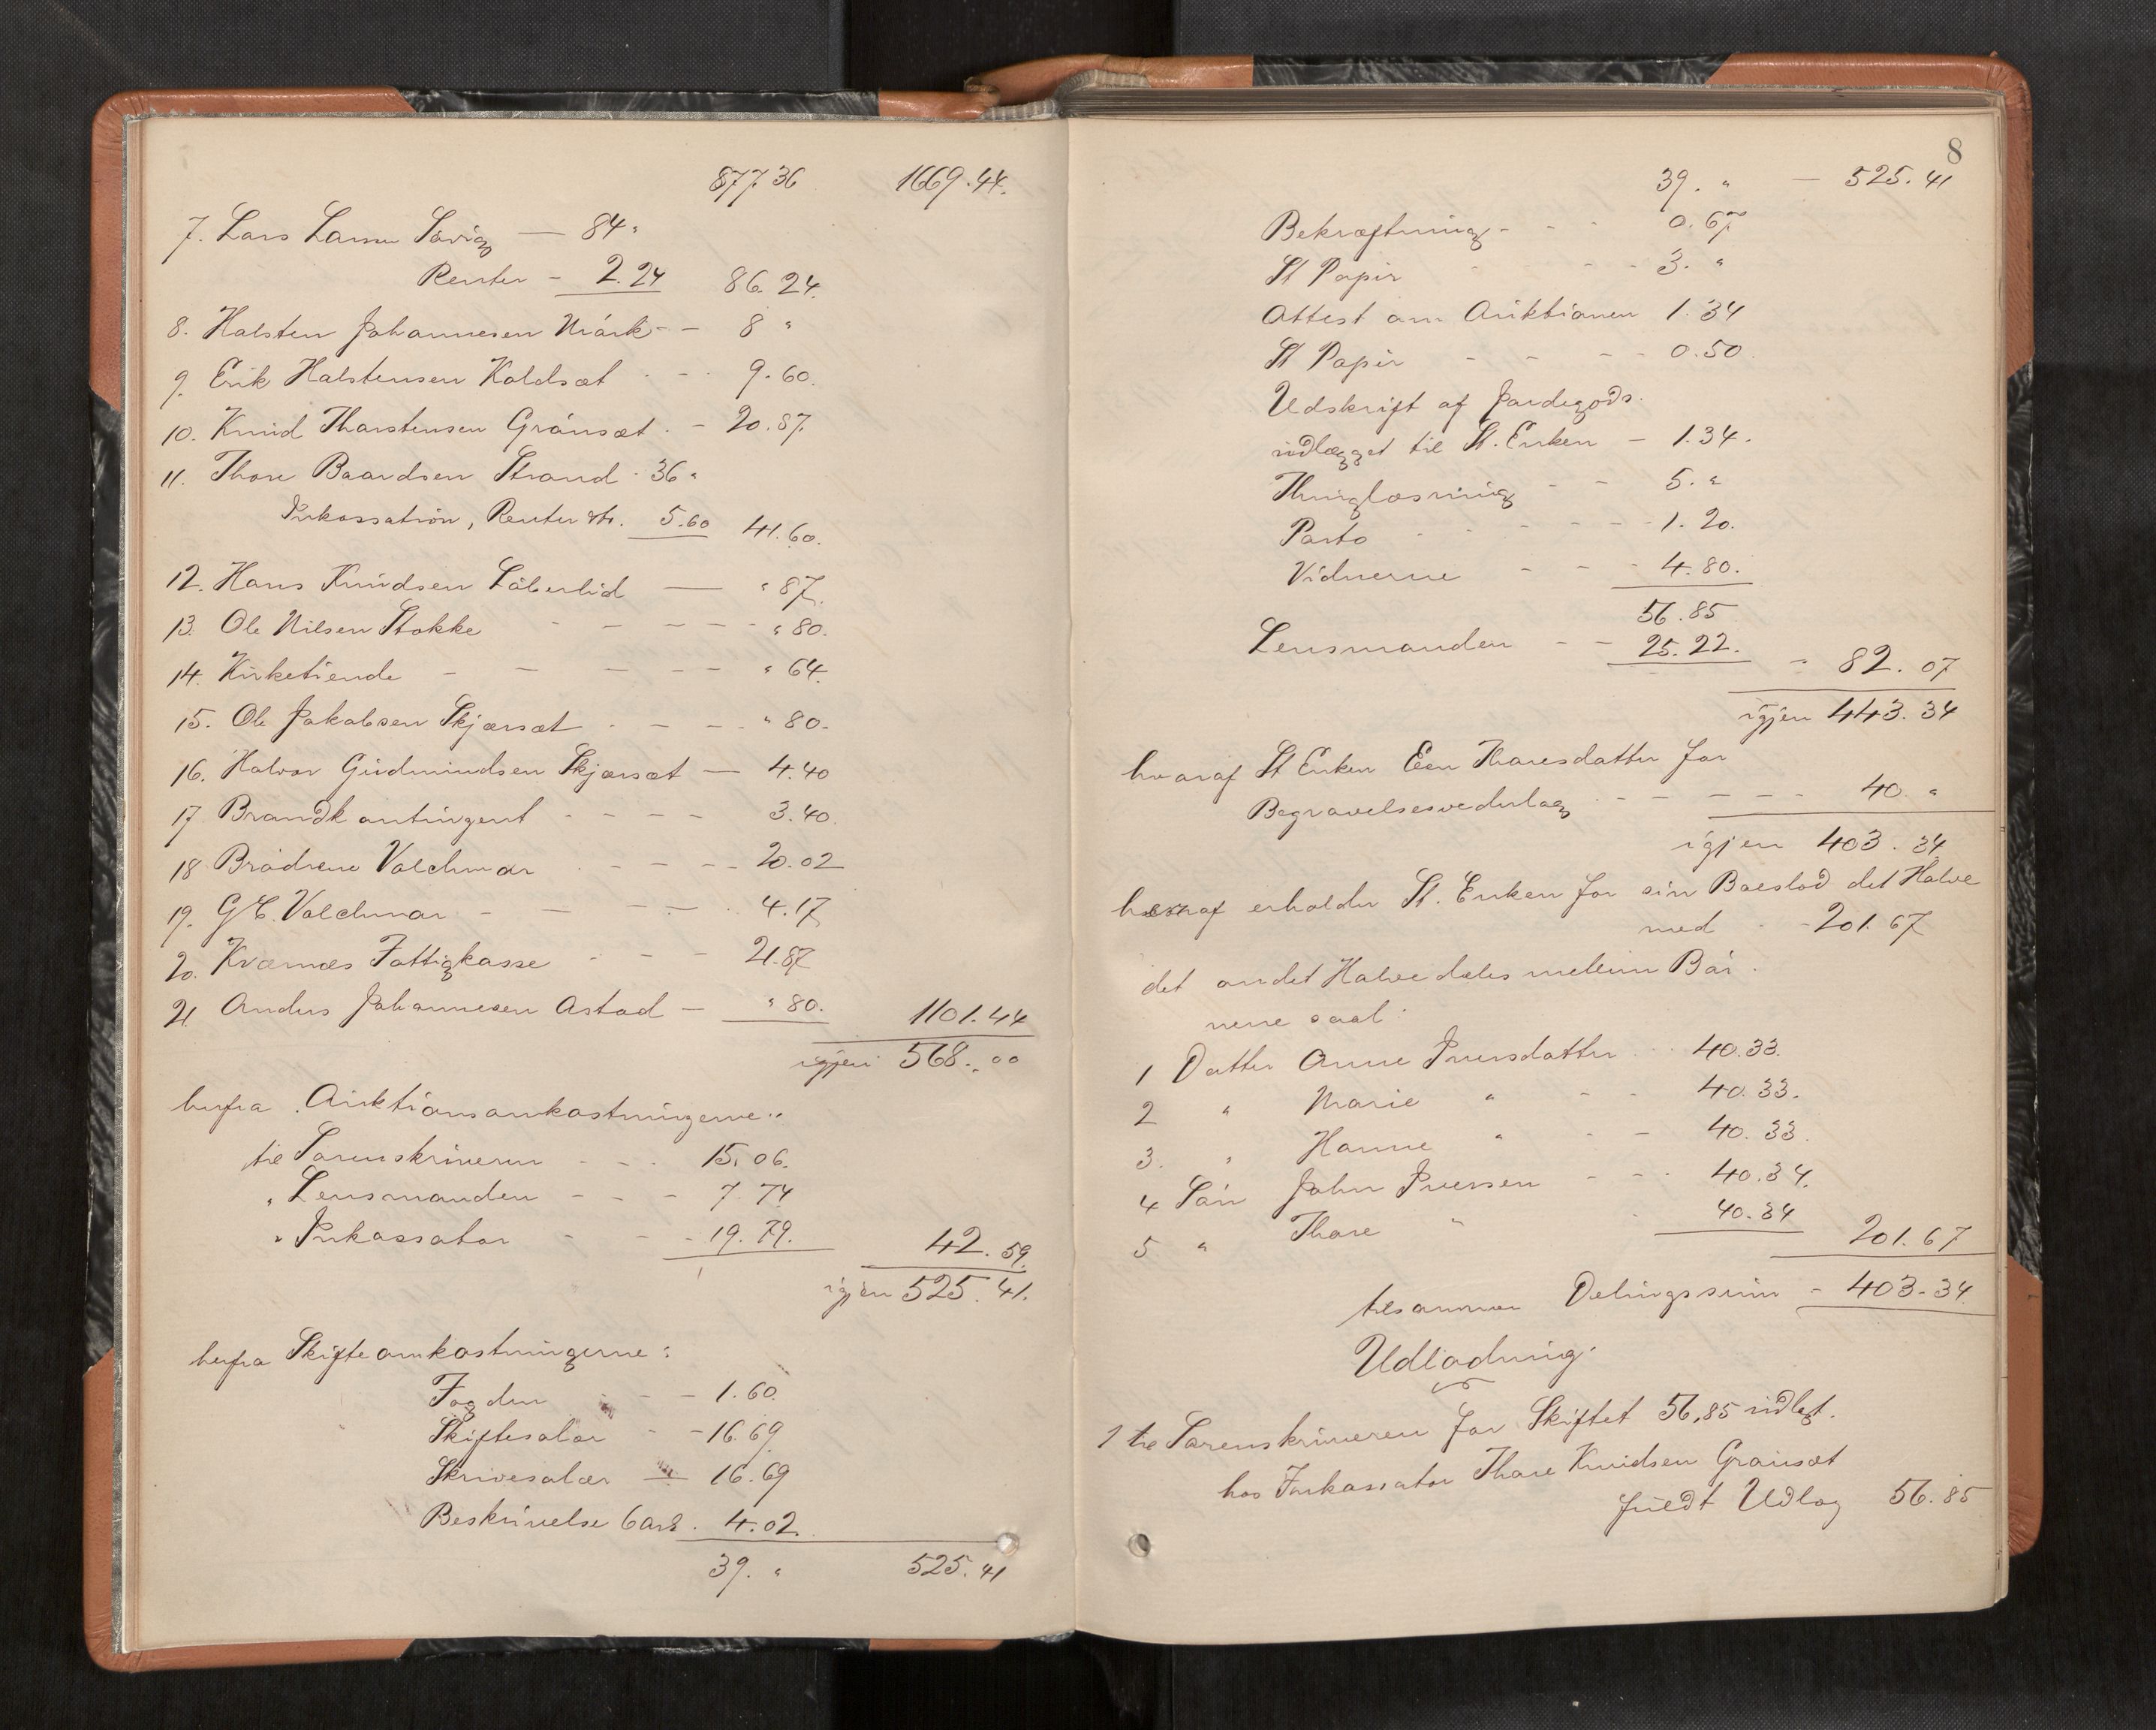 877.36 1669.44.
7. Lars Larsen Sövig — 84 "
Renter - 2.24 86.24.
8. Halsten Johannesen Mørk - - 8 "
9. Erik Halstensen Koldsæt - - 9.60.
10. Knud Thorstensen Grönsæt - 20.87.
11. Thore Baardsen Strand - 36 "
Inkassation, Renter etc. 5.60 41.60.
12. Hans Knudsen Löberlid — " 87.
13. Ole Nilsen Stokke - - - - - " 80.
14. Kirketiende - - - - - " 64.
15. Ole Jakobsen Skjærsæt - - - - " 80.
16. Halvor Gudmundsen Skjærsæt — 4.40
17 Brandkontingent - - - - 3.40.
18 Brödrene Volckmar - - - - 20.02
19. G. E. Volckmar - - - - 4.17
20. Kværnæs Fattigkasse - - - 21.87
21. Anders Johannesen Astad - " 80. 1101.44
igjen 568.00
herfra Auktionsomkostningerne:
til Sorenskriveren - - - 15.06.
" Lensmanden - - - 7.74
" Inkassator - - - 19.79. 42.59.
igjen 525.41.
herfra Skifteomkostningerne:
Fogden - - - 1.60.
Skiftesalær - - 16.69
Skrivesalær — 16.69
Beskrivelse 6 ark. 4.02.
39. " 525.41
8
39. " — 525.41
Bekræftning - - - 0.67
St Papir - - - 3. "
Attest om Auktionen 1.34
St Papir - - - - 0.50.
Udskrift af Jordegods
udlægget til St. Enken - 1.34.
Thinglæsning - - 5. "
Porto - - - - - 1.20.
Vidnerne - - - 4.80.
56.85
Lensmanden - - 25.22. - 82.07
igjen 443.34
hvoraf St Enken Eli Thoresdatter for
Begravelsesvederlag - - - - - 40 "
igjen 403.34
heraf erholder St. Enken for sin Boeslod det Halve
med - - 201.67
det andet Halve deles mellem Bör-
nene saal:
1 Datter Anne Iversdatter - 40.33.
2 " Marie " - - 40.33.
3. " Hanne " - - 40.33.
4 Sön John Iversen - - - 40.34.
5 " Thore " - 40.34 201.67
tilsammen Delingssum - 403.34
Udlodning:
1 til Sorenskriveren for Skiftet 56,85 udlagt.
hos Inkassator Thore Knudsen Grönsæt
fuldt Udlæg 56.85